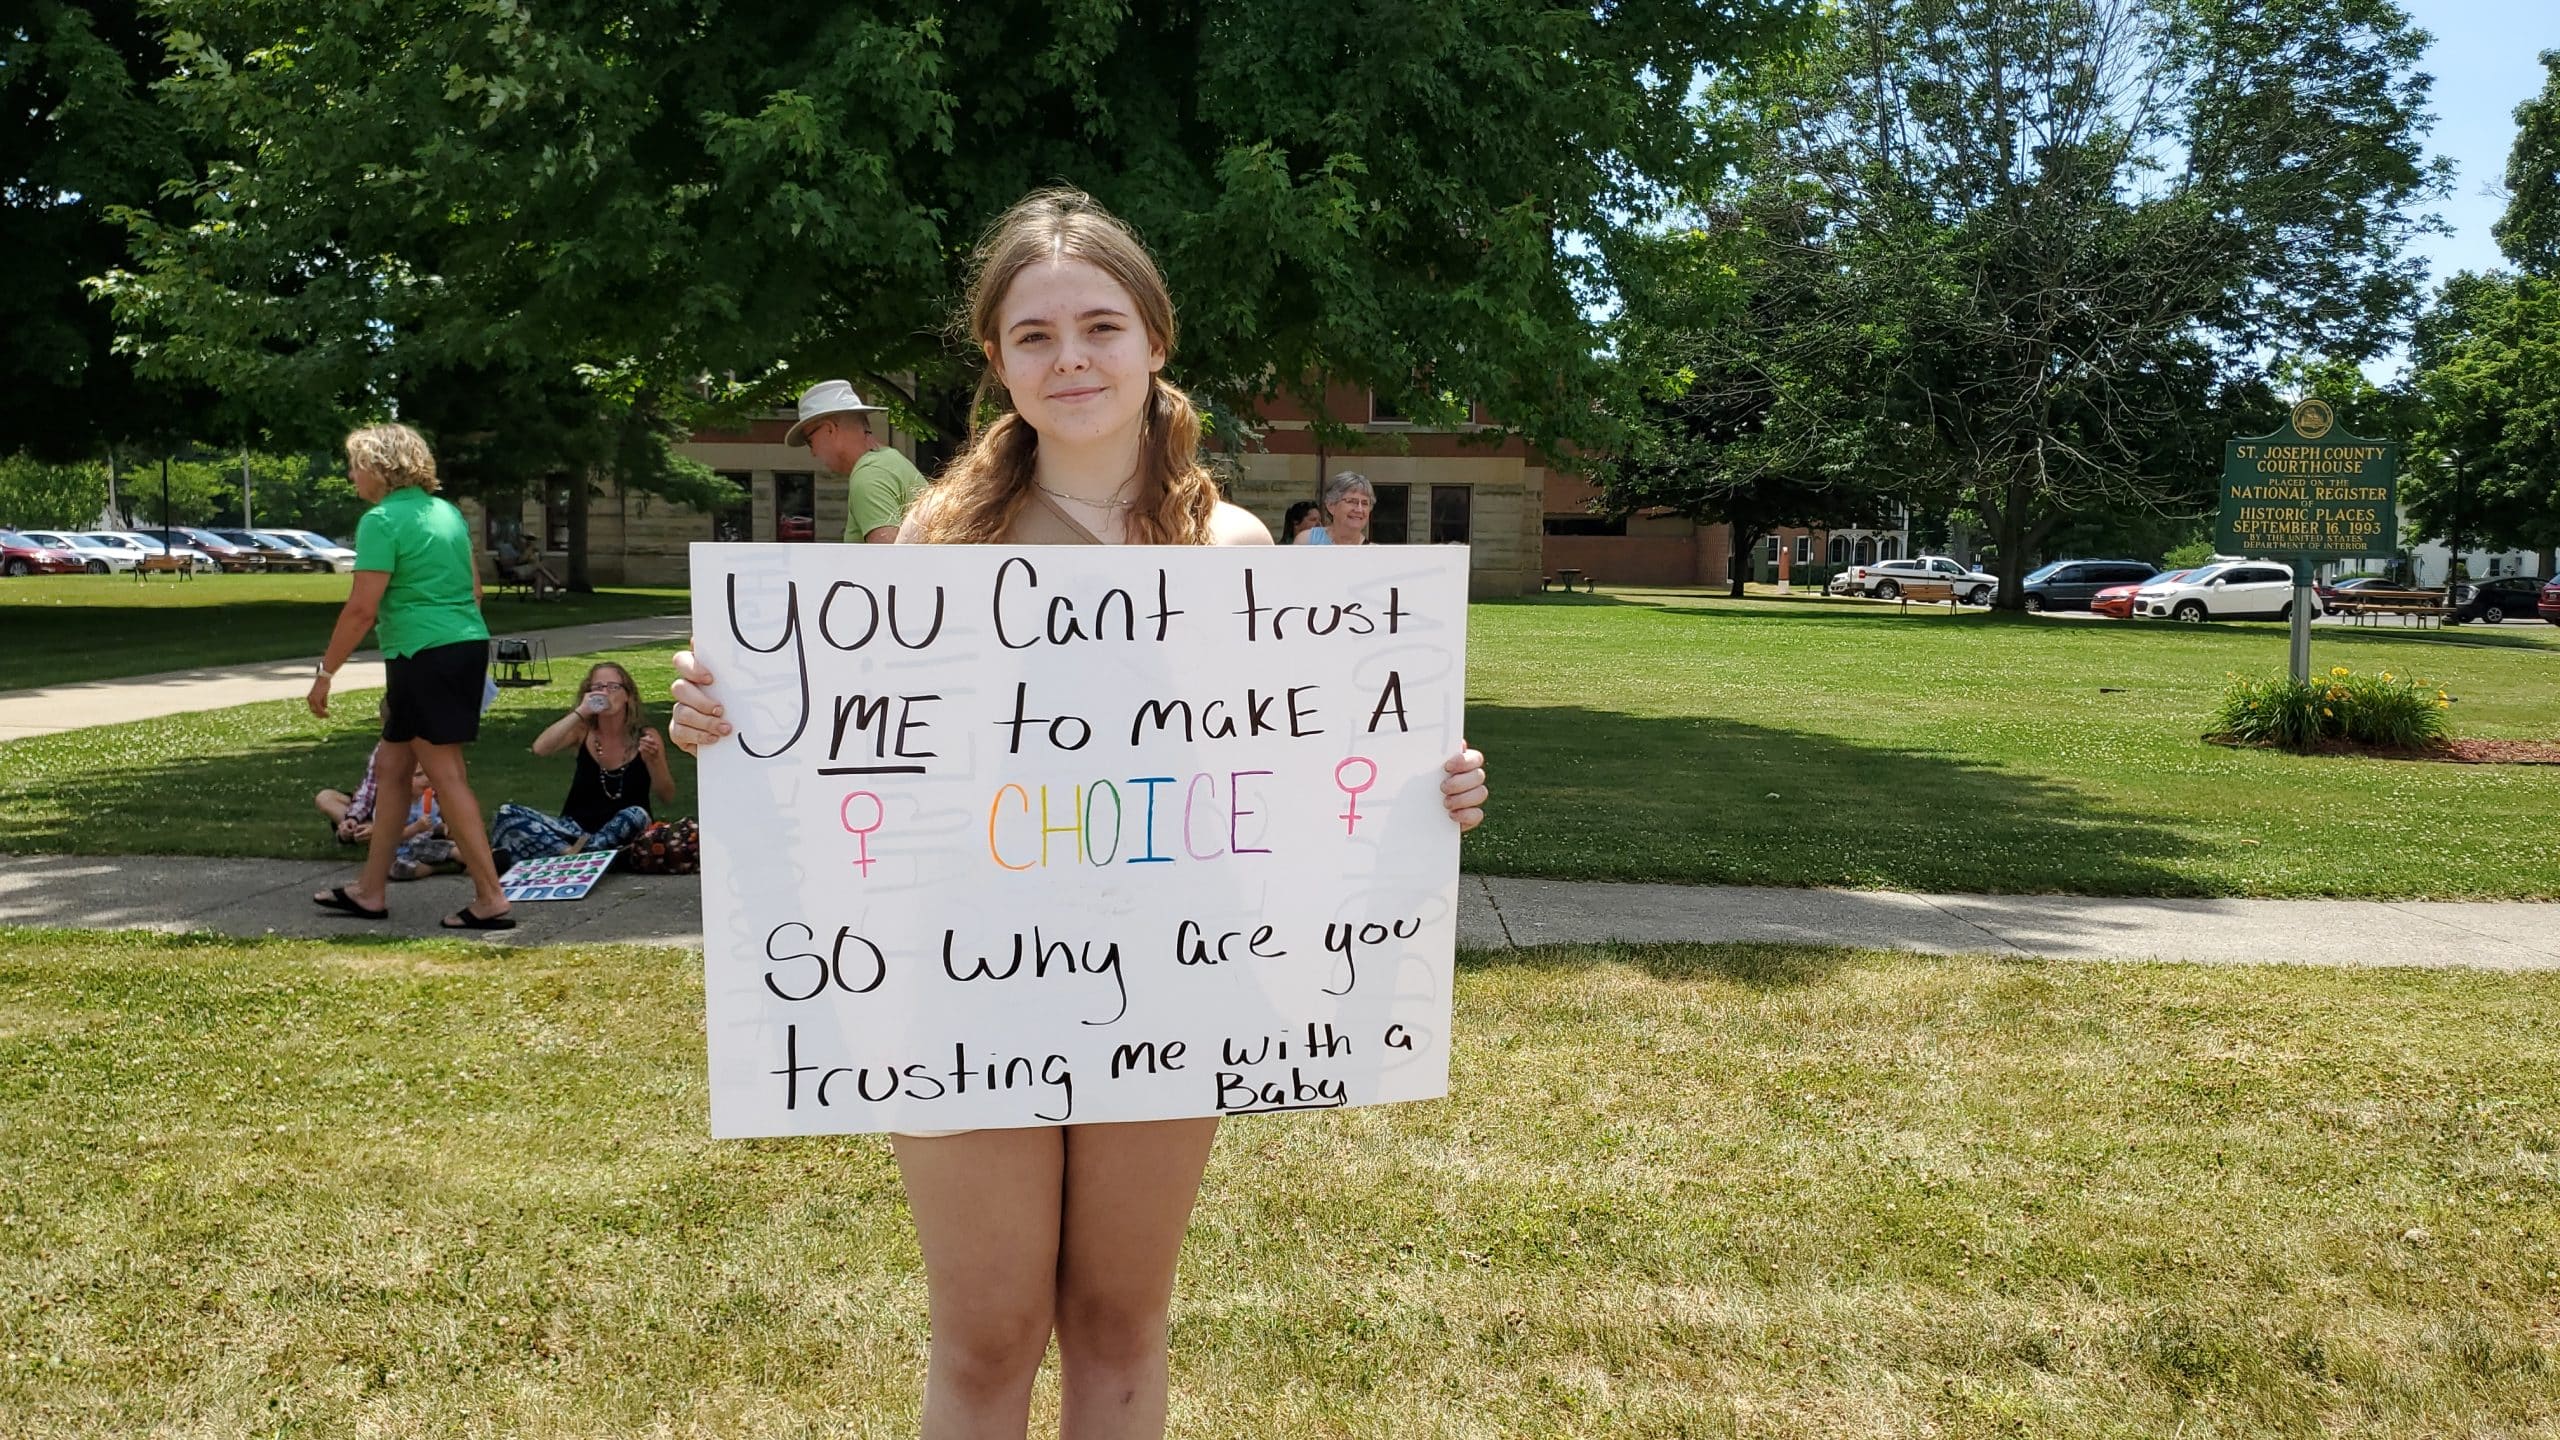 YOU Cant trust
ME to makE A
♀ CHOICE ♀
SO why are you
trusting me with a
Baby
ST. JOSEPH COUNTY
COURTHOUSE
PLACED ON THE
NATIONAL REGISTER
OF
HISTORIC PLACES
SEPTEMBER 16, 1993
BY THE UNITED STATES
DEPARTMENT OF INTERIOR